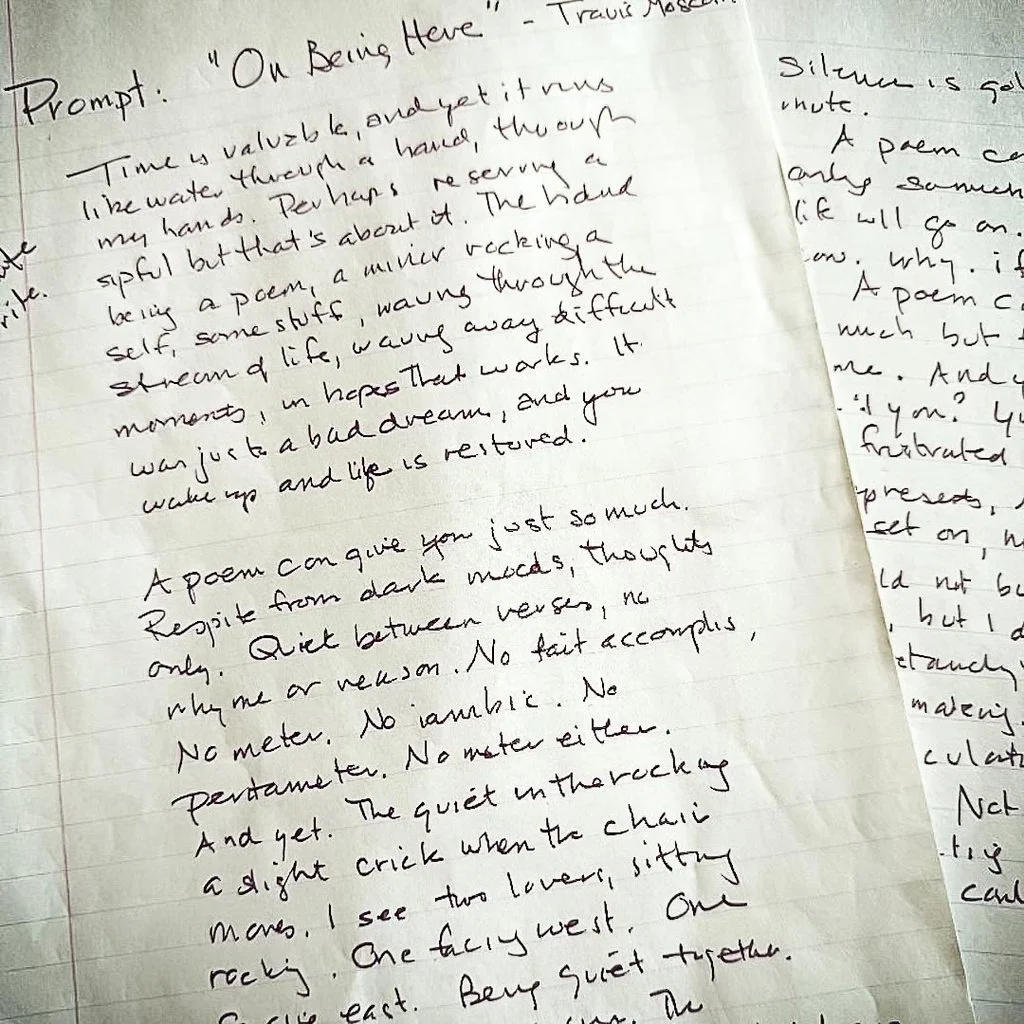 Prompt: "On Being Here" - Travis
Time is valuable, and yet it runs
like water through a hand, through
my hands. Perhaps reserving a
sipful but that's about it. The hand
being a poem, a mirror rocking a
self, some stuff, waving through the
stream of life, waving away difficult
moments, in hopes that works. It
was just a bad dream, and you
wake up and life is restored.
A poem can give you just so much.
Respite from dark moods, thoughts
only. Quiet between verses, no
rhyme or reason. No fait accomplis,
No meter. No iambic. No
pentameter. No mater either.
And yet. The quiet in the rocking
a slight crick when the chair
moves. I see two lovers, sitting
rocking. One facing west. One
east. Being quiet together.
The
Silence is
mute.
A poem
only
life will go on.
why. if
A poem
much but
me. And
you?
frustrated
set on,
not
but I
making.
Not